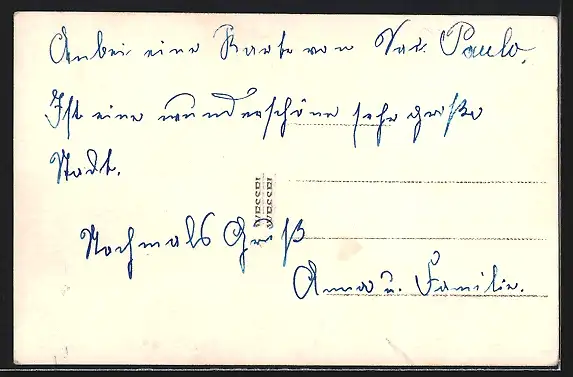 Anbei eine Karte von Sao. Paulo.
Ist eine wunderschöne sehr große
Stadt.
WESSEL
WESSEL
Nochmals Gruß
Anna u. Familie.